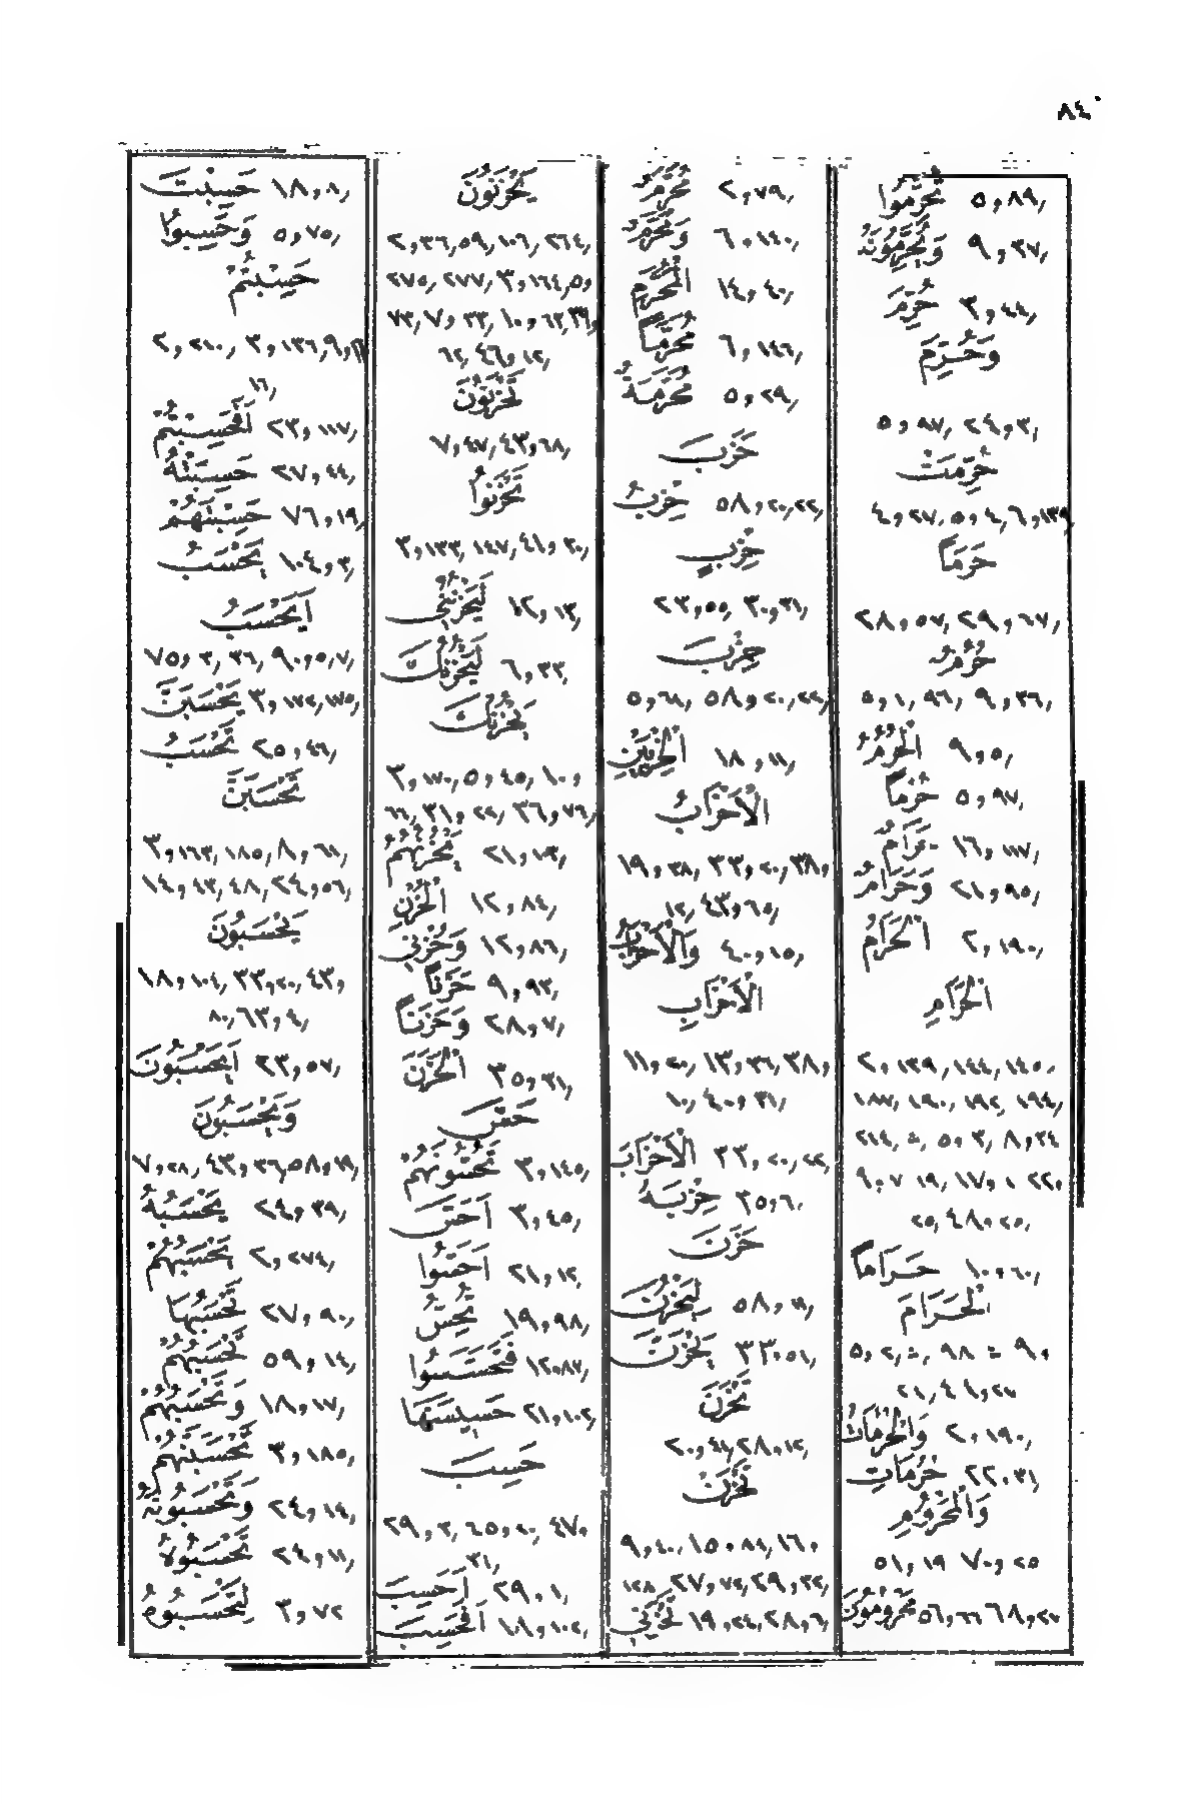 ٨٤
تُحَرِّمُوا ٥،٨٩،
وَيُحَرِّمُونَهُ ٩،٣٧،
حُرِّمَ ٣،٤٤،
وَحُرِّمَ
٥،٨٧،٢٤،٣،
حُرِّمَتْ
٤،٢٧،٥،٤،٦،١٣٩
حَرَمًا
٢٨،٥٧،٢٩،٦٧،
حُرُمٌ
٥،١،٩٦،٩،٣٦،
الْحُرُمُ ٩،٥،
حُرُمًا ٥،٩٧،
حَرَامٌ ١٦،١١٧،
وَحَرَامٌ ٢١،٩٥،
الْحَرَامُ ٢،١٩٠،
الْحَرَامِ
٢،١٣٩،١٤٤،١٤٥،
١٨٧،١٩٠،١٩٢،١٩٤،
حَرَامًا ١٠،٦٠،
الْحَرَامَ
وَالْحُرُمَاتُ ٢،١٩٠،
حُرُمَاتِ ٢٢،٣١
وَالْمَحْرُومِ
٥١،١٩ ٧٠،٢٥
مَحْرُومُونَ ٥٦،٦٦ ٦٨،٢٧
مُحَرَّمٌ ٢،٧٩،
وَمُحَرَّمٌ ٦،١٤٠،
الْمُحَرَّمِ ١٤،٤٠،
مُحَرَّمًا ٦،١٤٦،
مُحَرَّمَةٌ ٥،٢٩،
حَزَبَ
حِزْبُ ٥٨،٢٠،٢٢،
حِزْبٍ
٢٣،٥٥،٣٠،٣١،
حِزْبَ
٥،٦١،٥٨،٢٠،٢٢،
الْحِزْبَيْنِ ١٨،١١،
الْأَحْزَابُ
١٩،٣٨،٣٣،٢٠،٣٨،
١٢،٤٣،٦٥،
وَالْأَحْزَابُ ٤٠،١٥،
الْأَحْزَابِ
١١،٢٠،١٣،٣٦،٣٨،
١٠،٤٠،٣١،
الْأَحْزَابَ ٣٣،٢٠،٢٢،
حِزْبَهُ ٣٥،٦،
حَزَنَ
لِيَحْزُنَ ٥٨،١١،
يَحْزَنَّ ٣٣،٥١،
تَحْزَنَ
٢٠،٤١،٢٨،١٢،
تَحْزَنْ
٩،٤٠،١٥،٨٨،١٦،
١٢٨،٢٧،٧٢،٢٩،٣٢،
تَحْزَنِي ١٩،٢٤،٢٨،٦،
يَحْزَنُونَ
٢،٣٦،٥٩،١٠٦،٢٦٤،
٢٧٥،٢٧٧،٣،١٦٤،٥،
٧٣،٧،٣٣،١٠،٦٣،٣٩،
٦٢،٤٦،١٢،
تَحْزَنُونَ
٧،٤٧،٤٣،٦٨،
تَحْزَنُوا
٣،١٣٣،١٤٧،٤١،٣٠،
لَيَحْزُنُنِي ١٢،١٣،
لَيَحْزُنُكَ ٦،٣٣،
يَحْزُنْكَ
٣،١٧٠،٥،٤٥،١٠،
٦٦،٣١،٢٢،٣٦،٧٦،
يَحْزُنُهُمُ ٢١،١٠٣،
الْحُزْنِ ١٢،٨٤،
وَحُزْنِي ١٢،٨٦،
حَزَنًا ٩،٩٣،
وَحَزَنًا ٢٨،٧،
الْحَزَنَ ٣٥،٣١،
حَسَّ
تَحُسُّونَهُمْ ٣،١٤٥،
أَحَسَّ ٣،٤٥،
أَحَسُّوا ٢١،١٢،
تُحِسُّ ١٩،٩٨،
فَتَحَسَّسُوا ١٢،٨٧،
حَسِيسَهَا ٢١،١٠٢،
حَسِبَ
٢٩،٣،٤٥،٢٠،٤٧،
٣١،
أَحَسِبَ ٢٩،١،
أَفَحَسِبَ ١٨،١٠٢،
حَسِبْتَ ١٨،٨،
وَحَسِبُوا ٥،٧٥،
حَسِبْتُمْ
٢،٢١٠،٣،١٣٦،٩،١٦
١٦،
أَفَحَسِبْتُمْ ٢٣،١١٧،
حَسِبَتْهُ ٢٧،٤٤،
حَسِبْتَهُمْ ٧٦،١٩،
يَحْسَبُ ١٠٤،٣،
أَيَحْسَبُ
٧٥،٣،٣٦،٩٠،٥،٧،
يَحْسَبَنَّ ٣،١٧٢،١٧٥،
تَحْسَبُ ٢٥،٤٦،
تَحْسَبَنَّ
٣،١٦٣،١٨٥،٨،٦١،
١٤،١٣،٤٨،٢٤،٥٦،
يَحْسَبُونَ
١٨،١٠٤،٣٣،٢٠،٤٣،
٨٠،٦٣،٤،
أَيَحْسَبُونَ ٢٣،٥٧،
وَيَحْسَبُونَ
٧،٢٨،٤٣،٣٦،٥٨،١٩،
يَحْسَبُهُ ٢٤،٣٩،
يَحْسَبُهُمُ ٢،٢٧٤،
تَحْسَبُهَا ٢٧،٩٠،
تَحْسَبُهُمْ ٥٩،١٤،
وَتَحْسَبُهُمْ ١٨،١٧،
تَحْسَبَنَّهُمْ ٣،١٨٥،
وَتَحْسَبُونَهُ ٢٤،١٤،
تَحْسَبُوهُ ٢٤،١١،
لِتَحْسَبُوهُ ٣،٧٢